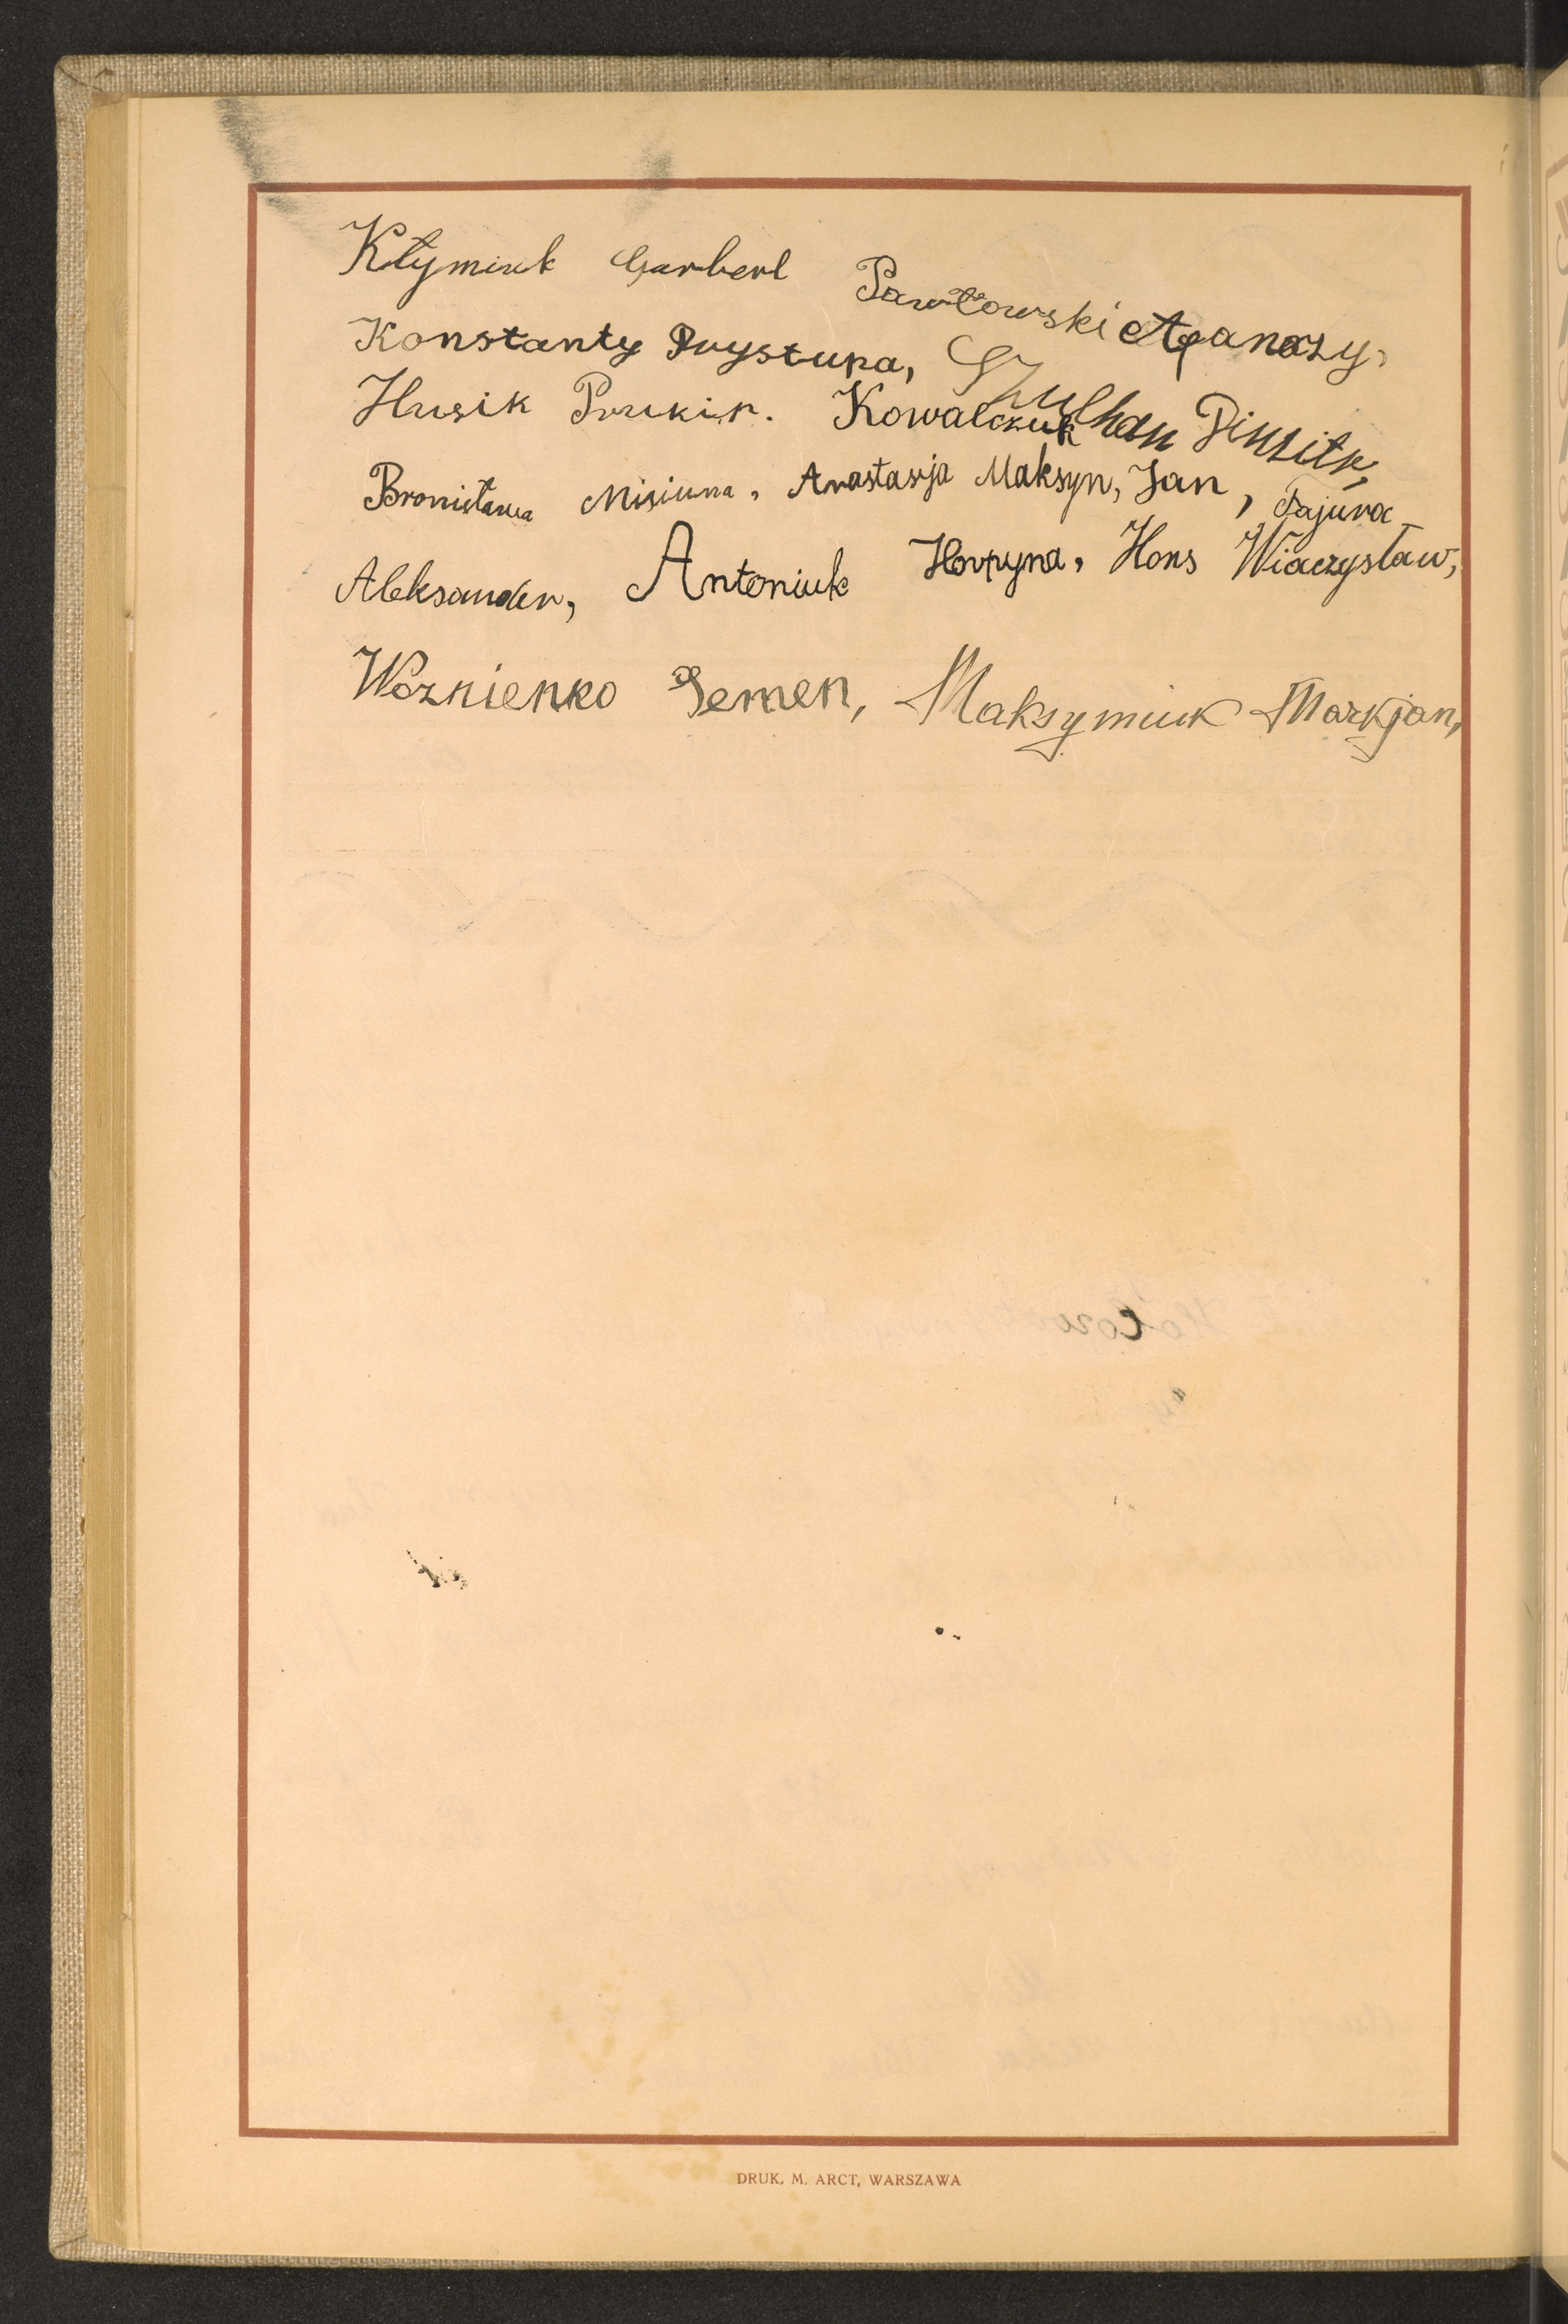 Kłymiuk Pawłowski Apanazy,
Konstanty Prystupa, Szulhan
Husik Kowalczuk
Bronisława Misiuna, Anastasja Maksyn, Jan, Fajura
Aleksander, Antoniuk Horpyna, Hons Wiaczysław,
Woznienko Semen, Maksymiuk Markjan,
DRUK. M. ARCT, WARSZAWA